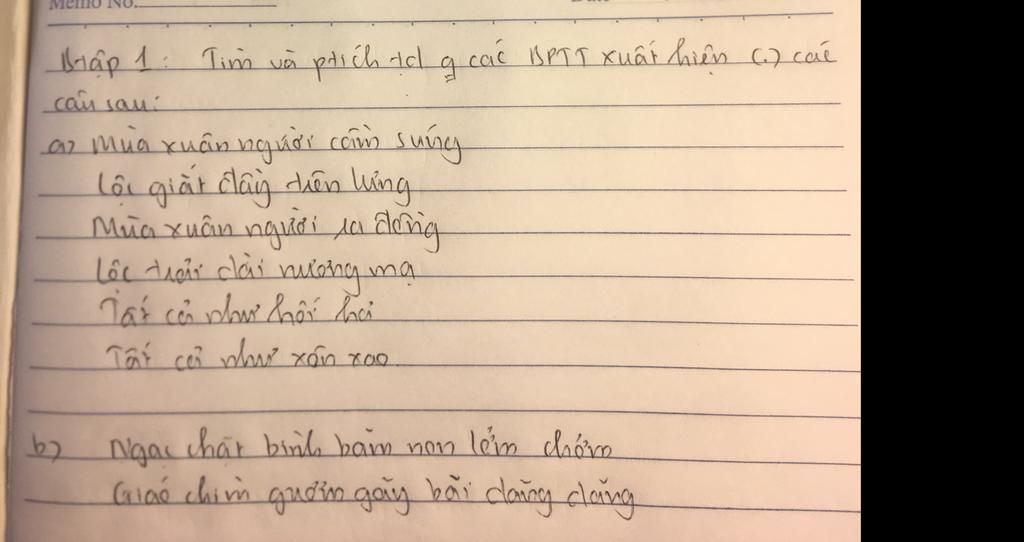 Memo No.
Btập 1: Tìm và ptích td g các BPTT xuất hiện (.) các
câu sau:
a) Mùa xuân người cầm súng
Lộc giắt đầy trên lưng
Mùa xuân người ra đồng
Lộc trải dài nương mạ
Tất cả như hối hả
Tất cả như xôn xao
b) Ngạc chất bình bầm non lởm chởm
Giáo chìm gươm gãy bãi dằng dằng